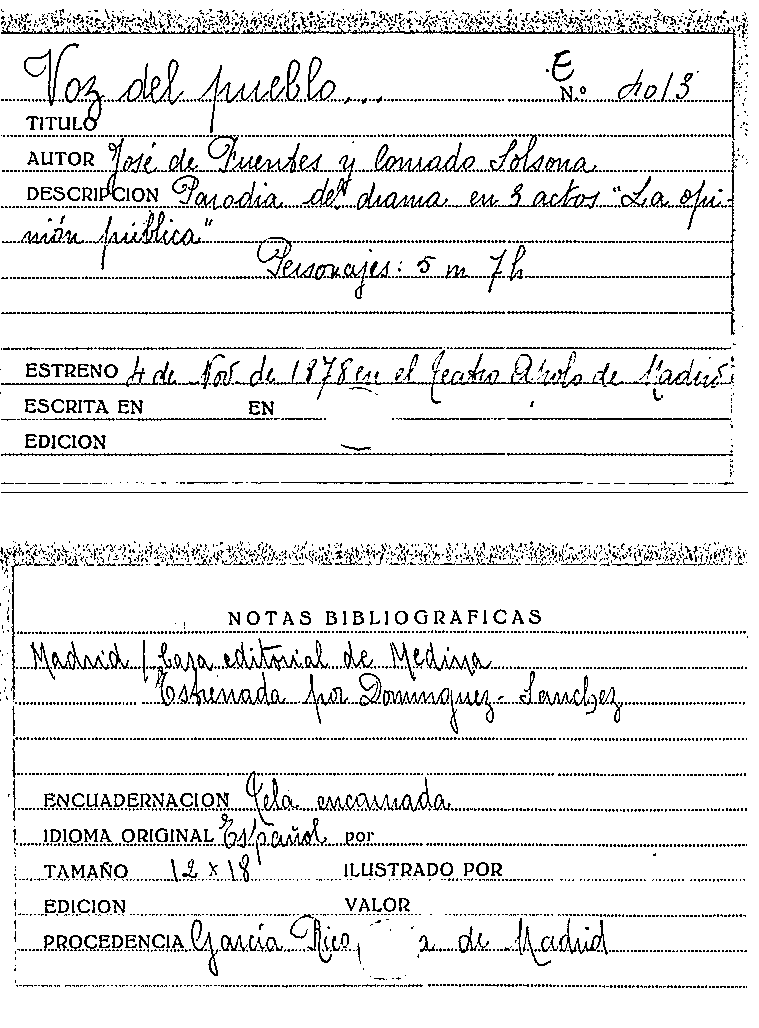 Voz del pueblo... E
N.º 4013
TITULO
AUTOR José de Fuentes y Conrado Solsona
DESCRIPCION Parodia del drama en 3 actos "La opi-
nión pública"
Personajes: 5 m 7 h
ESTRENO 4 de Nov de 1878 en el teatro Apolo de Madrid
ESCRITA EN EN
EDICION
NOTAS BIBLIOGRAFICAS
Madrid / Casa editorial de Medina
Estrenada por Dominguez-Sanchez
ENCUADERNACION Tela encarnada
IDIOMA ORIGINAL Español por
TAMAÑO 12 x 18 ILUSTRADO POR
EDICION VALOR
PROCEDENCIA García Rico, de Madrid